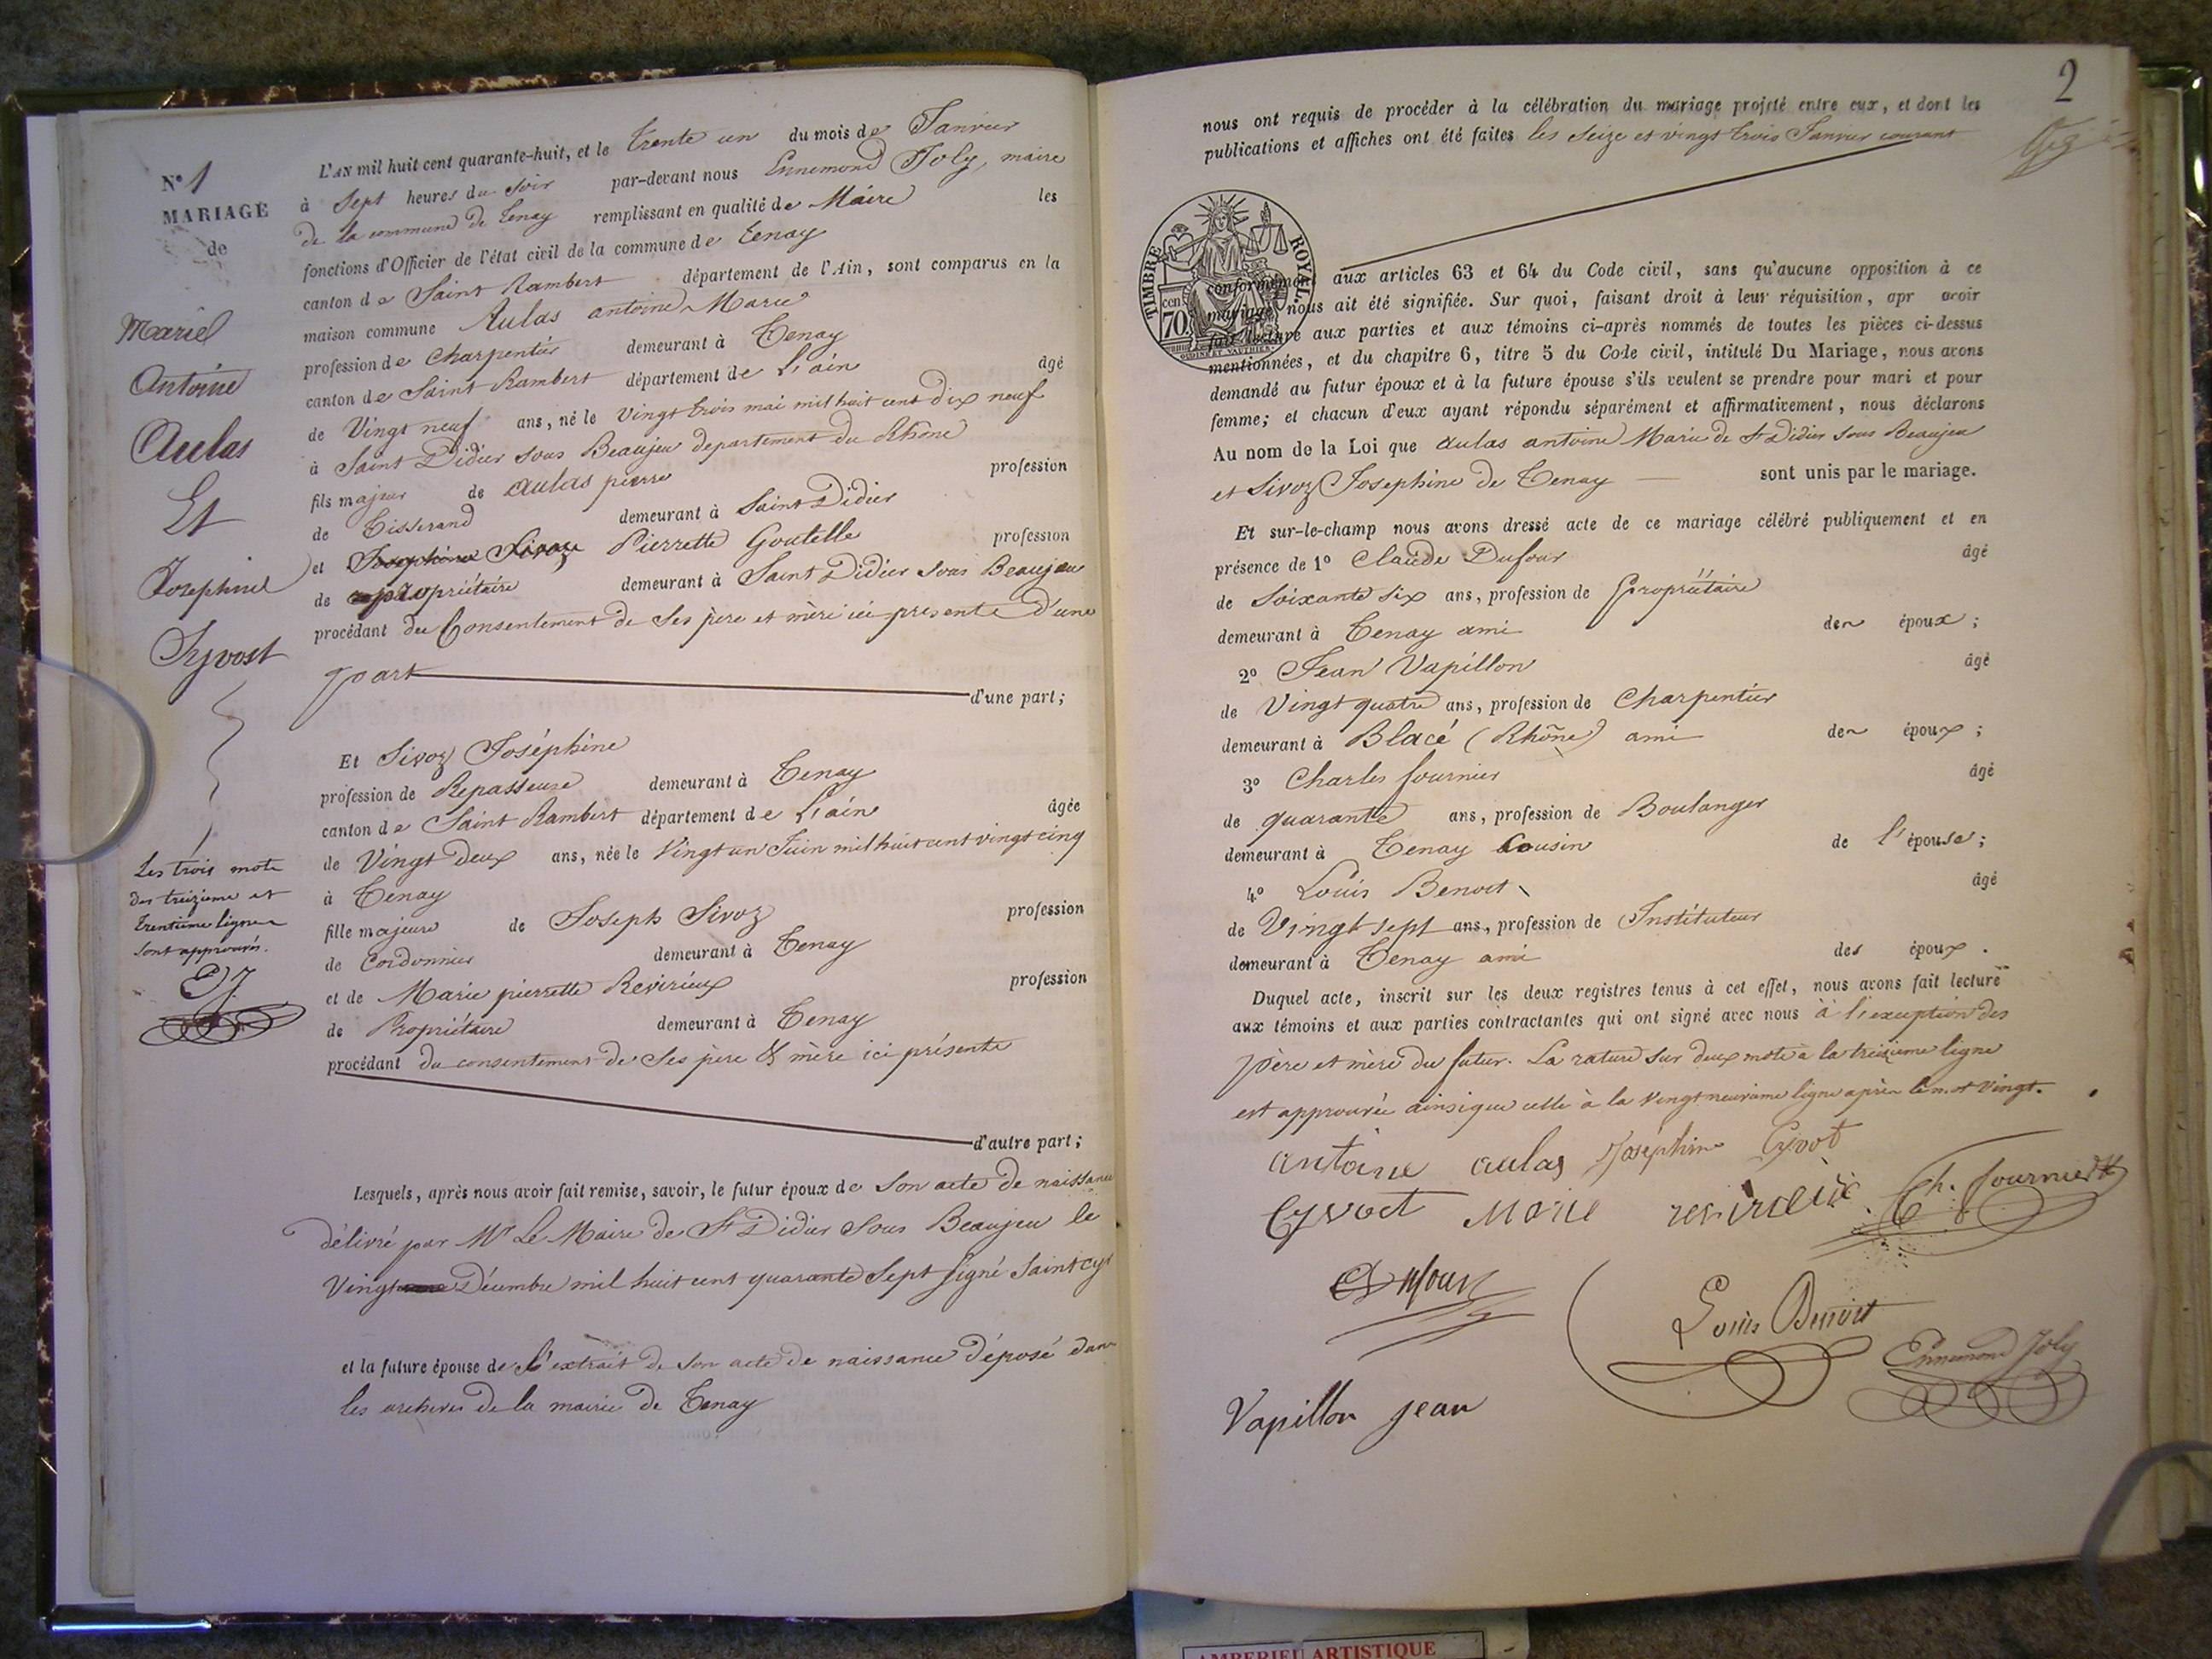 N° 1
MARIAGE
de
Mariel
Antoine
Aulas
Et
Josephine
Syvost
Les trois mots
des treizième et
trentième lignes
sont approuvés.
EJ
L'AN mil huit cent quarante-huit, et le trente un du mois de Janvier
à Sept heures du soir par-devant nous Ennemond Joly, maire
de la commune de Tenay remplissant en qualité de Maire les
fonctions d'Officier de l'état civil de la commune de Tenay
canton de Saint Rambert département de l'Ain, sont comparus en la
maison commune Aulas antoine Marie
profession de Charpentier demeurant à Tenay
canton de Saint Rambert département de l'ain âgé
de Vingt neuf ans, né le Vingt trois mai mil huit cent dix neuf
à Saint Didier sous Beaujeu departement du Rhône
fils majeur de Aulas pierre profession
de Tisserand demeurant à Saint Didier
et Josephine Sivoz Pierrette Goutelle profession
de propriétaire demeurant à Saint Didier sous Beaujeu
procédant du Consentement de Ses père et mère ici présente d'une
part d'une part;
Et Sivoz Joséphine
profession de Repasseuse demeurant à Tenay
canton de Saint Rambert département de l'ain âgée
de Vingt deux ans, née le Vingt un Juin mil huit cent vingt cinq
à Tenay
fille majeure de Joseph Sivoz profession
de Cordonnier demeurant à Tenay
et de Marie pierrette Revirieux profession
de Propriétaire demeurant à Tenay
procédant du consentement de Ses père & mère ici présente
d'autre part;
Lesquels, après nous avoir fait remise, savoir, le futur époux de Son acte de naissance
délivré par Mr Le Maire de St Didier Sous Beaujeu le
Vingt Décembre mil huit cent quarante Sept signé Saint cyr
et la future épouse de l'extrait de son acte de naissance déposé dans
les archives de la mairie de Tenay
2
nous ont requis de procéder à la célébration du mariage projeté entre eux, et dont les
publications et affiches ont été faites les Seize et vingt trois Janvier courant
TIMBRE ROYAL
cen 70
OUDINE ET VAUTHIER
conformément aux articles 63 et 64 du Code civil, sans qu'aucune opposition à ce
mariage nous ait été signifiée. Sur quoi, faisant droit à leur réquisition, apr avoir
fait lecture aux parties et aux témoins ci-après nommés de toutes les pièces ci-dessus
mentionnées, et du chapitre 6, titre 5 du Code civil, intitulé Du Mariage, nous avons
demandé au futur époux et à la future épouse s'ils veulent se prendre pour mari et pour
femme; et chacun d'eux ayant répondu séparément et affirmativement, nous déclarons
Au nom de la Loi que Aulas antoine Marie de St Didier sous Beaujeu
et Sivoz Josephine de Tenay sont unis par le mariage.
Et sur-le-champ nous avons dressé acte de ce mariage célébré publiquement et en
présence de 1° Claude Dufour âgé
de Soixante six ans, profession de Propriétaire
demeurant à Tenay ami des époux;
2° Jean Vapillon âgé
de Vingt quatre ans, profession de Charpentier
demeurant à Blacé (Rhône) ami des époux;
3° Charles fournier âgé
de quarante ans, profession de Boulanger
demeurant à Tenay Cousin de l'épouse;
4° Louis Benoit âgé
de Vingt sept ans, profession de Instituteur
demeurant à Tenay ami des époux.
Duquel acte, inscrit sur les deux registres tenus à cet effet, nous avons fait lecture
aux témoins et aux parties contractantes qui ont signé avec nous à l'exception des
père et mère du futur. La rature sur deux mots à la treizième ligne
est approuvée ainsi que celle à la vingt neuvième ligne après le mot vingt.
antoine aulas Joséphine Cyvot
Cyvoct Marie revirieux Ch. fournier
Dufour
Louis Benoit
Ennemond Joly
Vapillon jean
AMBERIEU ARTISTIQUE